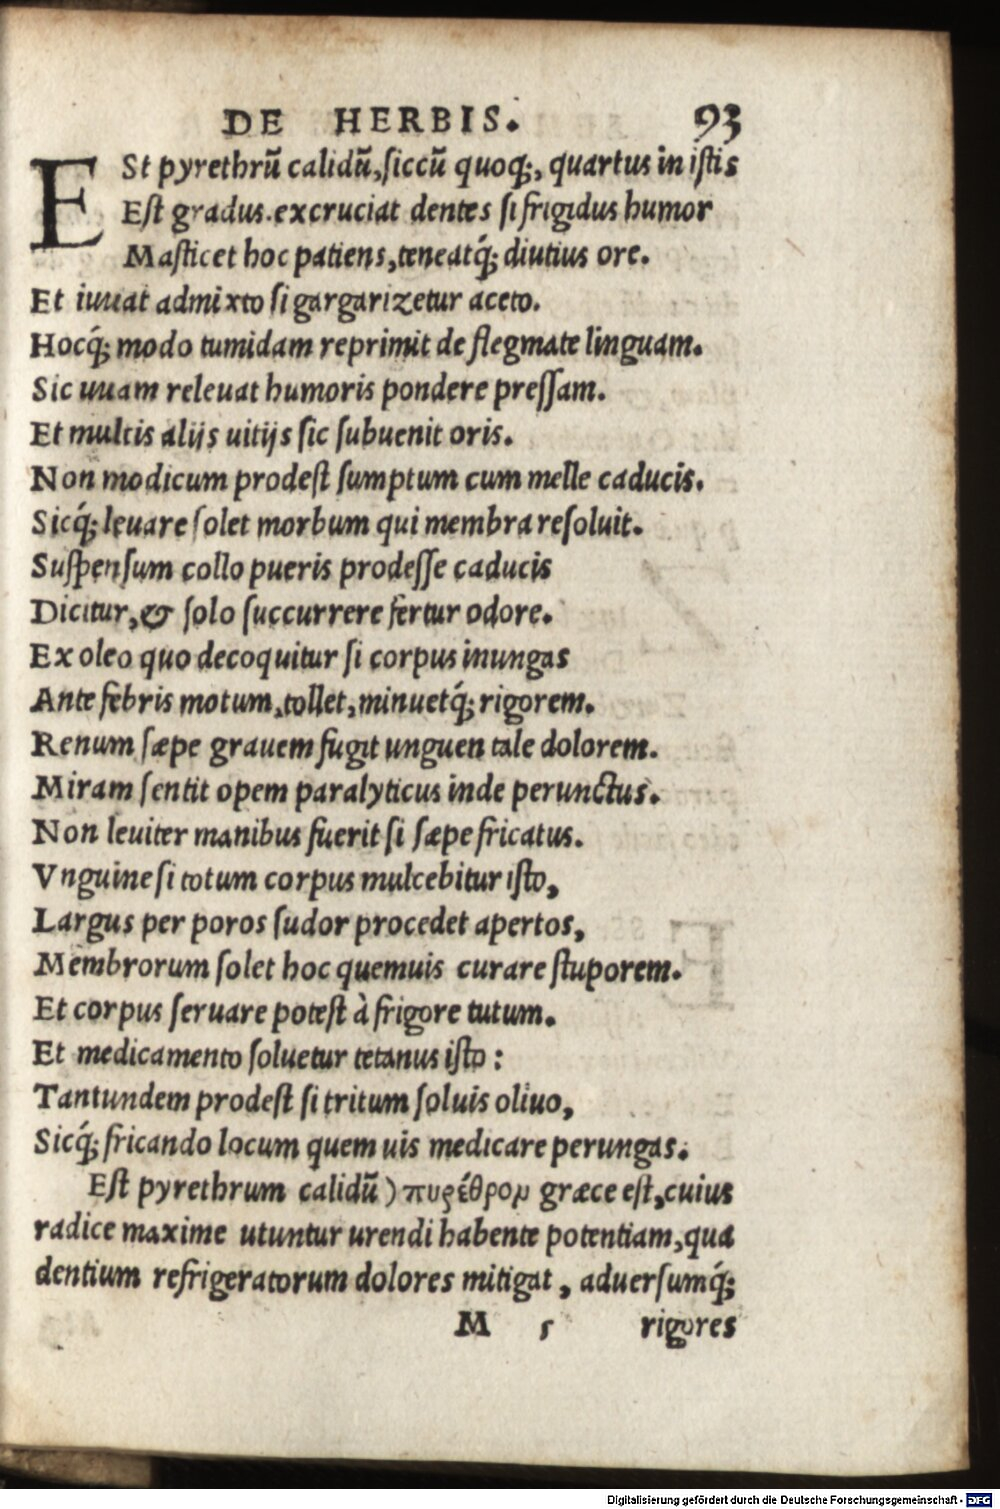 DE HERBIS. 93
ESt pyrethrũ calidũ, siccũ quoq;, quartus in istis
Est gradus. excruciat dentes si frigidus humor
Masticet hoc patiens, teneatq́; diutius ore.
Et iuuat admixto si gargarizetur aceto.
Hocq́; modo tumidam reprimit de flegmate linguam.
Sic uuam releuat humoris pondere pressam.
Et multis alijs uitijs sic subuenit oris.
Non modicum prodest sumptum cum melle caducis.
Sicq́; leuare solet morbum qui membra resoluit.
Suspensum collo pueris prodesse caducis
Dicitur, & solo succurrere fertur odore.
Ex oleo quo decoquitur si corpus inungas
Ante febris motum, tollet, minuetq́; rigorem.
Renum sæpe grauem fugit unguen tale dolorem.
Miram sentit opem paralyticus inde perunctus.
Non leuiter manibus fuerit si sæpe fricatus.
Vnguine si totum corpus mulcebitur isto,
Largus per poros sudor procedet apertos,
Membrorum solet hoc quemuis curare stuporem.
Et corpus seruare potest à frigore tutum.
Et medicamento soluetur tetanus isto:
Tantundem prodest si tritum soluis oliuo,
Sicq́; fricando locum quem uis medicare perungas.
Est pyrethrum calidũ) πυρέθρομ græce est, cuius
radice maxime utuntur urendi habente potentiam, qua
dentium refrigeratorum dolores mitigat, aduersumq́;
M 5 rigores
Digitalisierung gefördert durch die Deutsche Forschungsgemeinschaft - DFG